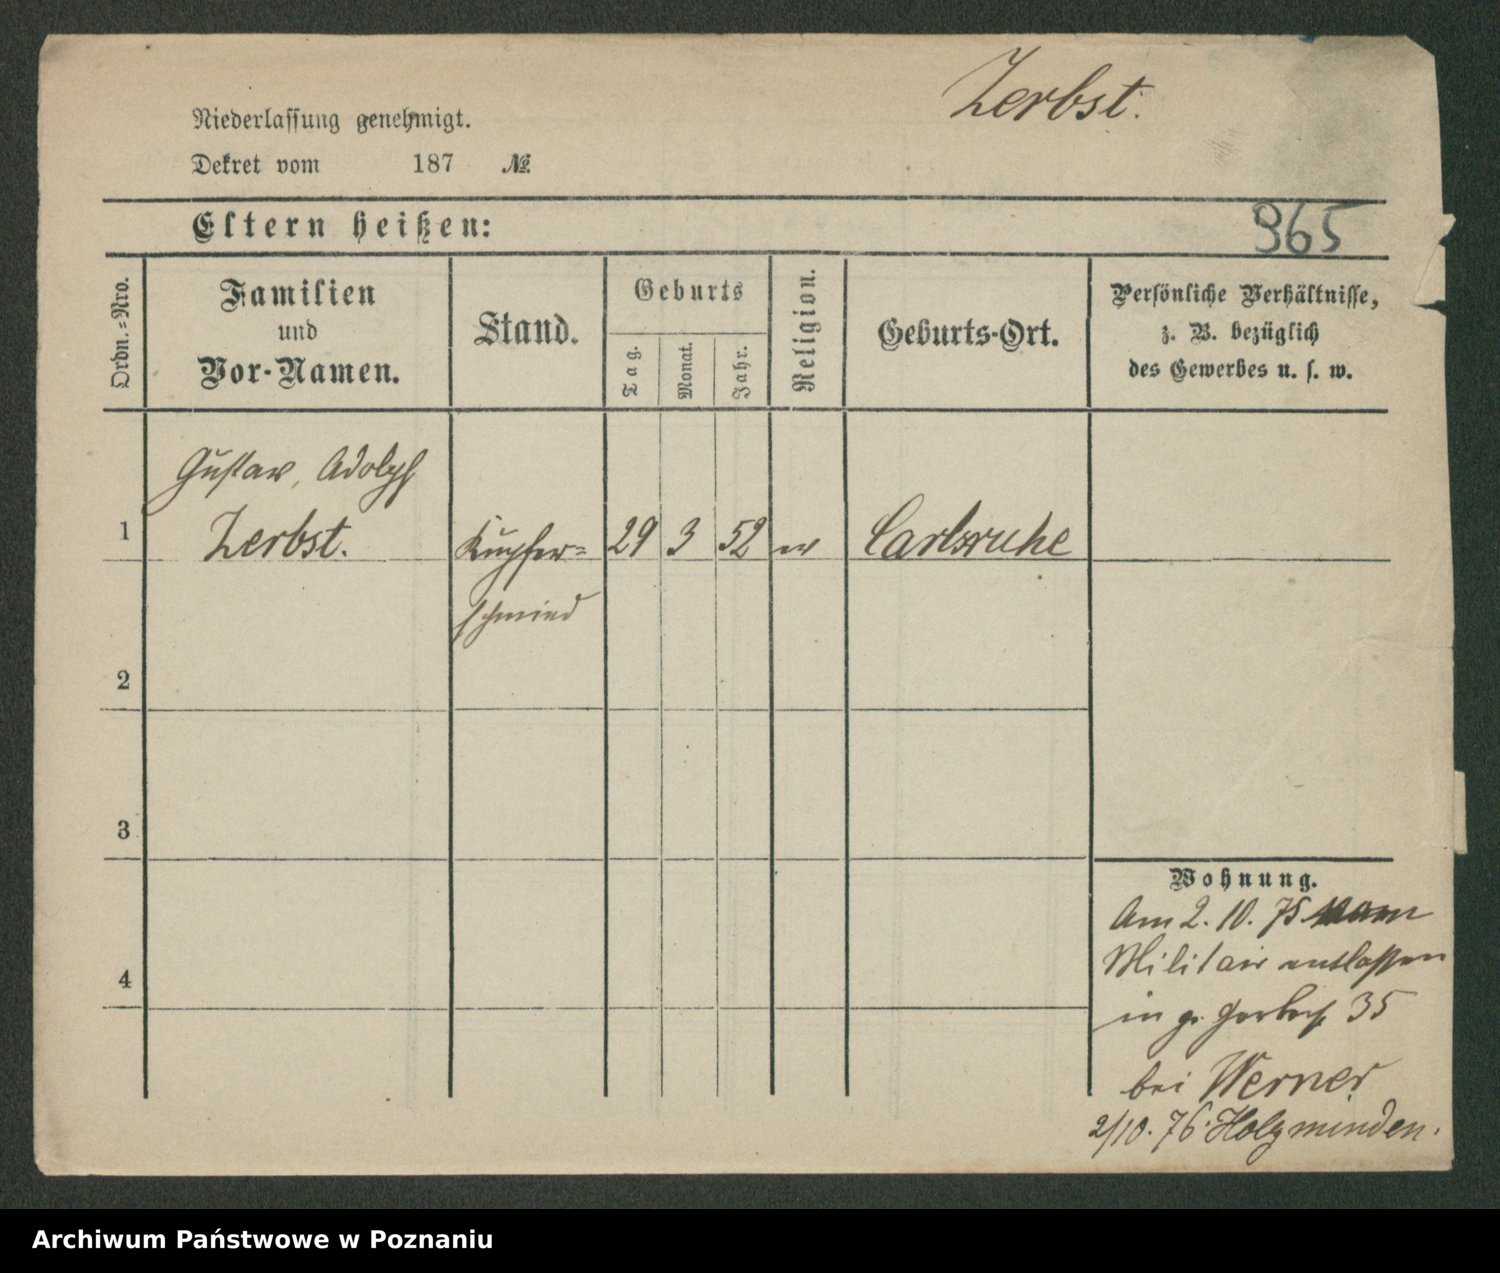 Zerbst.
Niederlassung genehmigt.
Dekret vom 187 №
Eltern heißen:
965
Ordn.=Nro.
Familien
und
Vor-Namen.
Stand.
Geburts
Tag.
Monat.
Jahr.
Religion.
Geburts-Ort.
Persönliche Verhältnisse,
z. B. bezüglich
des Gewerbes u. s. w.
Gustav, Adolph
1 Zerbst. Kupfer= 29 3 52 ev Carlsruhe
schmied
2
3
4
Wohnung.
Am 2. 10. 75 vom
Militair entlassen
in gr. Gerberst. 35
bei Werner
2/10. 76. Holzminden.
Archiwum Państwowe w Poznaniu